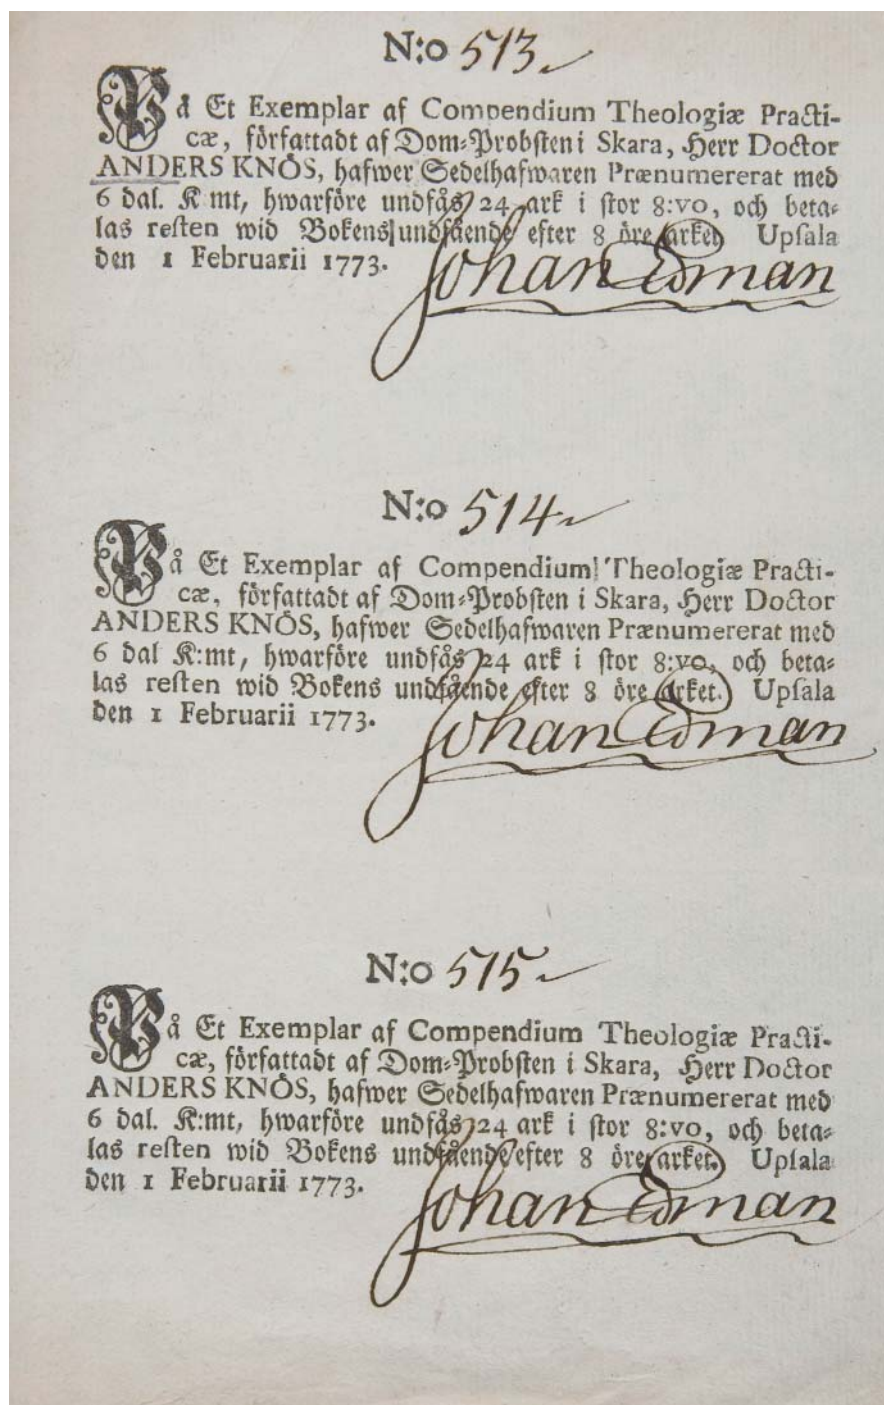 N:o 513
På Et Exemplar af Compendium Theologiæ Practi-
cæ, författadt af Dom-Probsten i Skara, Herr Doctor
ANDERS KNÖS, hafwer Sedelhafwaren Prænumererat med
6 dal. K mt, hwarföre undfås 24 ark i stor 8:vo, och beta-
las resten wid Bokens undfående efter 8 öre arket. Upsala
den 1 Februarii 1773.
Johan Edman
N:o 514
På Et Exemplar af Compendium Theologiæ Practi-
cæ, författadt af Dom-Probsten i Skara, Herr Doctor
ANDERS KNÖS, hafwer Sedelhafwaren Prænumererat med
6 dal K:mt, hwarföre undfås 24 ark i stor 8:vo, och beta-
las resten wid Bokens undfående efter 8 öre arket. Upsala
den 1 Februarii 1773.
Johan Edman
N:o 515
På Et Exemplar af Compendium Theologiæ Practi-
cæ, författadt af Dom-Probsten i Skara, Herr Doctor
ANDERS KNÖS, hafwer Sedelhafwaren Prænumererat med
6 dal. K:mt, hwarföre undfås 24 ark i stor 8:vo, och beta-
las resten wid Bokens undfående efter 8 öre arket. Upsala
den 1 Februarii 1773.
Johan Edman